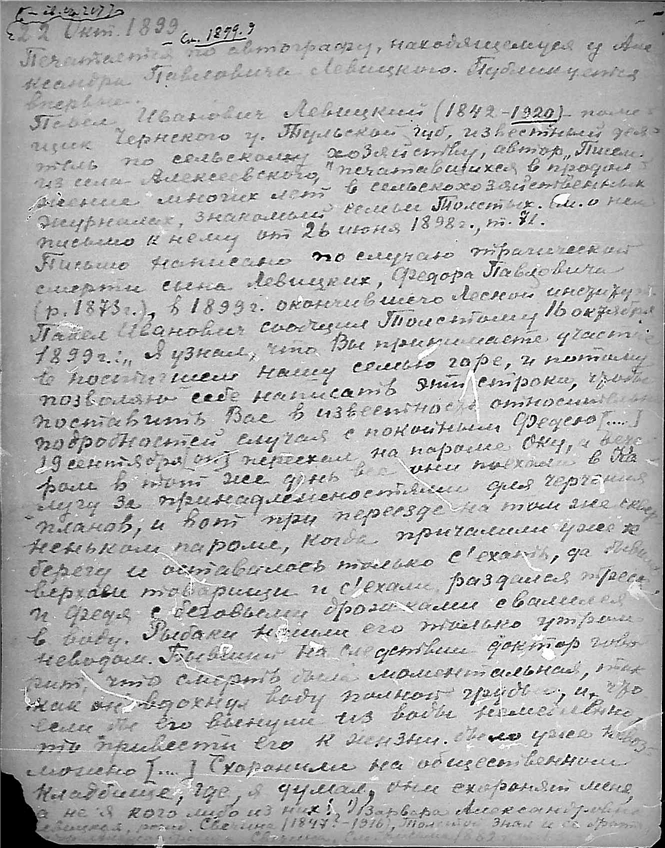 22 Окт. 1899
См. 1899.9
Печатается по автографу, находящемуся у Але
ксандра Павловича Левицкого. Публикуется
впервые.
Павел Иванович Левицкий (1842-1920) поме
щик Чернского у. Тульской губ, известный дея
тель по сельскому хозяйству, автор „Писем
из села Алексеевского," печатавшихся в продол
жение многих лет в сельскохозяйственных
журналах, знакомый семьи Толстых. См. о нем
письмо к нему от 26 июня 1898г., т. 71.
Письмо написано по случаю трагической
смерти сына Левицких, Федора Павловича
(р. 1873г.), в 1899г. окончившего Лесной институт
Павел Иванович сообщил Толстому 16 октября
1899г.: „Я узнал, что Вы принимаете участие
в постигшем нашу семью горе, и потому
позволяю себе написать эти строки, чтобы
поставить Вас в известность относительно
подробностей случая с покойным Федею [....]
19 сентября [он] переехал на пароме Оку, а вече
ром в тот же день все они поехали в Ка
лугу за принадлежностями для черчения
планов, и вот при переезде на том же
неньком пароме, когда причалили уже к
берегу и оставалось только с'ехать, да
верхови товарищи и с'ехали, раздался треск
и Федя с беговыми дрожками свалился
в воду. Рыбаки нашли его только утром
неводом. Бывший на следствии доктор гово
рит, что смерть была моментальная, так
как он вдохнул воду полной грудью, и, что
если бы его вынули из воды немедленно,
то привести его к жизни было уже невоз
можно [....] Схоронили на общественном
кладбище, где, я думал, они схоронят меня,
а не я кого либо из них!" Варвара Александровна
Левицкая, рожд. Свечина (1847?-1916), Толстой знал и ее брата